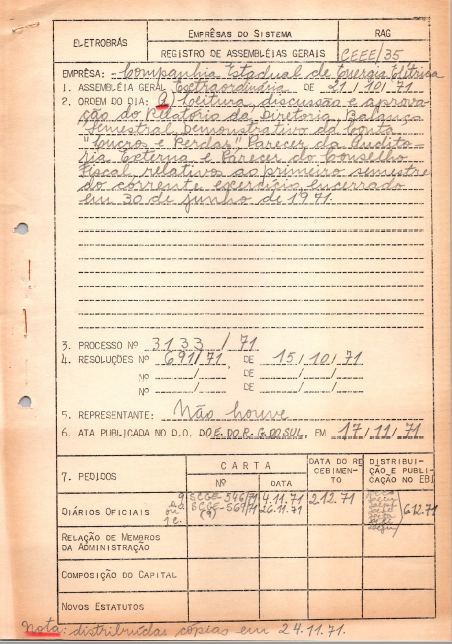 ELETROBRÁS
EMPRÊSAS DO SISTEMA
RAG
REGISTRO DE ASSEMBLÉIAS GERAIS
CEEE/35
EMPRÊSA: Companhia Estadual de Energia Elétrica
1. ASSEMBLÉIA GERAL Extraordinária DE 21/10/71
2. ORDEM DO DIA: a) Leitura, discussão e aprova-
ção do Relatório da Diretoria, Balanço
Semestral, Demonstrativo da Conta
"Lucros e Perdas", Parecer da Audito-
ria Externa e Parecer do Conselho
Fiscal, relativos ao primeiro semestre
do corrente exercício, encerrado
em 30 de junho de 1971.
3. PROCESSO Nº 3133/71
4. RESOLUÇÕES Nº 691/71, DE 15/10/71
Nº / DE / /
Nº / DE / /
5. REPRESENTANTE: Não houve
6. ATA PUBLICADA NO D.O. DO E. DO R.G. DO SUL, EM 17/11/71
7. PEDIDOS
CARTA
Nº
DATA
DATA DO RE
CEBIMEN-
TO
DISTRIBUI-
ÇÃO E PUBLI-
CAÇÃO NO EBI
DIÁRIOS OFICIAIS
SCGE-546/71 4.11.71 2.12.71
SCGE-569/71 26.11.71
(9)
6.12.71
RELAÇÃO DE MEMBROS
DA ADMINISTRAÇÃO
COMPOSIÇÃO DO CAPITAL
NOVOS ESTATUTOS
Nota: distribuídas cópias em 24.11.71.